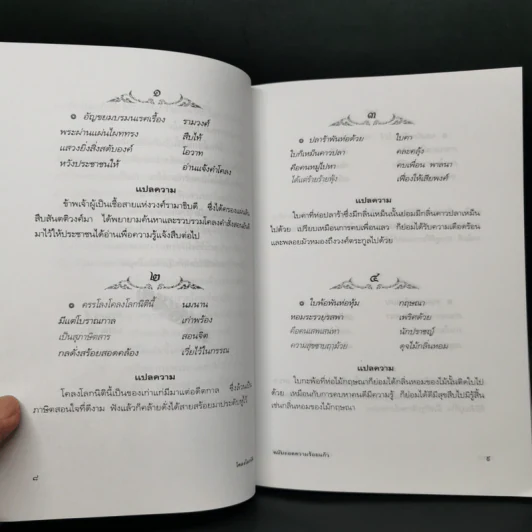 ๑
๏ อัญขยมบรมนเรศเรื้อง รามวงศ์
พระผ่านแผ่นไผททรง สืบไท้
แสวงยิ่งสิ่งสดับองค์ โอวาท
หวังประชาชนให้ อ่านแจ้งคำโคลง
แปลความ
ข้าพเจ้าผู้เป็นเชื้อสายแห่งวงศ์รามาธิบดี ซึ่งได้ครองแผ่นดิน
สืบสันตติวงศ์มา ได้พยายามค้นหาและรวบรวมโคลงคำสั่งสอนอันมี
มาไว้ให้ประชาชนได้อ่านเพื่อความรู้แจ้งสืบต่อไป
๒
๏ ครรโลงโคลงโลกนิตินี้ นมนาน
มีแต่โบราณกาล เก่าพร้อง
เป็นสุภาษิตสาร สอนจิต
กลดั่งสร้อยสอดคล้อง เวี่ยไว้ในกรรณ
แปลความ
โคลงโลกนิตินี้เป็นของเก่าแก่มีมาแต่อดีตกาล ซึ่งล้วนเป็น
ภาษิตสอนใจที่ดีงาม ฟังแล้วก็คล้ายดั่งได้สายสร้อยมาประดับหูไว้
๘
๓
๏ ปลาร้าพันห่อด้วย ใบคา
ใบก็เหม็นคาวปลา คละคลุ้ง
คือคนหมู่ไปหา คบเพื่อน พาลนา
ได้แต่ร้ายร้ายฟุ้ง เฟื่องให้เสียพงศ์
แปลความ
ใบคาที่ห่อปลาร้าซึ่งมีกลิ่นเหม็นนั้นย่อมมีกลิ่นคาวปลาเหม็น
ไปด้วย เปรียบเหมือนการคบเพื่อนเลว ก็ย่อมได้รับความเดือดร้อน
และพลอยมัวหมองถึงวงศ์ตระกูลไปด้วย
๔
๏ ใบพ้อพันห่อหุ้ม กฤษณา
หอมระรวยรสพา เพริศด้วย
คือคนเสพเสน่หา นักปราชญ์
ความสุขซาบฤๅม้วย ดุจไม้กลิ่นหอม
แปลความ
ใบกะพ้อที่ห่อไม้กฤษณาก็ย่อมได้กลิ่นหอมของไม้นั้นติดใบไป
ด้วย เหมือนกับการคบหาคนดีมีความรู้ ก็ย่อมได้ดีมีสุขสืบไปมิรู้สิ้น
เช่นกลิ่นหอมของไม้กฤษณา
ฉบับถอดความร้อยแก้ว
๙